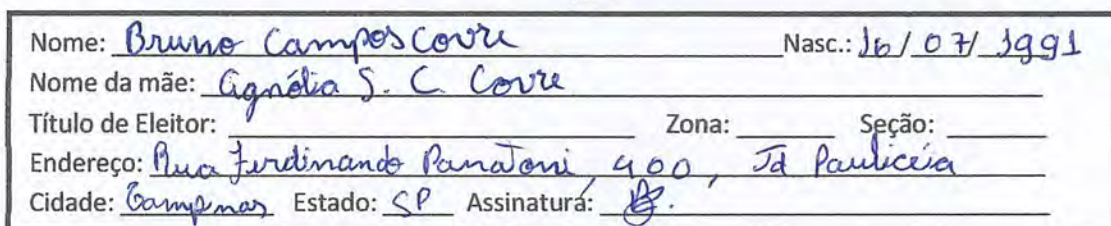 Nome: Bruno Campos Covre Nasc.: 16/07/1991
Nome da mãe: Agnélia S. C. Covre
Título de Eleitor: Zona: Seção:
Endereço: Rua Ferdinando Panatoni, 400, Jd Paulicéia
Cidade: Campinas Estado: SP Assinatura: